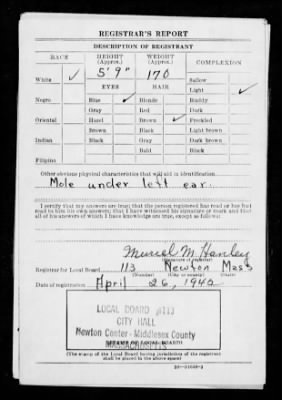 REGISTRAR'S REPORT
DESCRIPTION OF REGISTRANT
RACE HEIGHT (Approx.) WEIGHT (Approx.) COMPLEXION
5' 9" 170
White ✓ Sallow
EYES HAIR Light ✓
Negro Blue ✓ Blonde Ruddy
Gray Red Dark
Oriental Hazel Brown ✓ Freckled
Brown Black Light brown
Indian Black Gray Dark brown
Bald Black
Filipino
Other obvious physical characteristics that will aid in identification
Mole under left ear.
I certify that my answers are true; that the person registered has read or has had
read to him his own answers; that I have witnessed his signature or mark and that
all of his answers of which I have knowledge are true, except as follows:
Muriel M. Hanley
Registrar for Local Board 113 Newton Mass
(Number) (City or county) (State)
Date of registration April 26, 1942
LOCAL BOARD #113
CITY HALL
Newton Center - Middlesex County
MASSACHUSETTS
(The stamp of the Local Board having jurisdiction of the registrant
shall be placed in the above space)